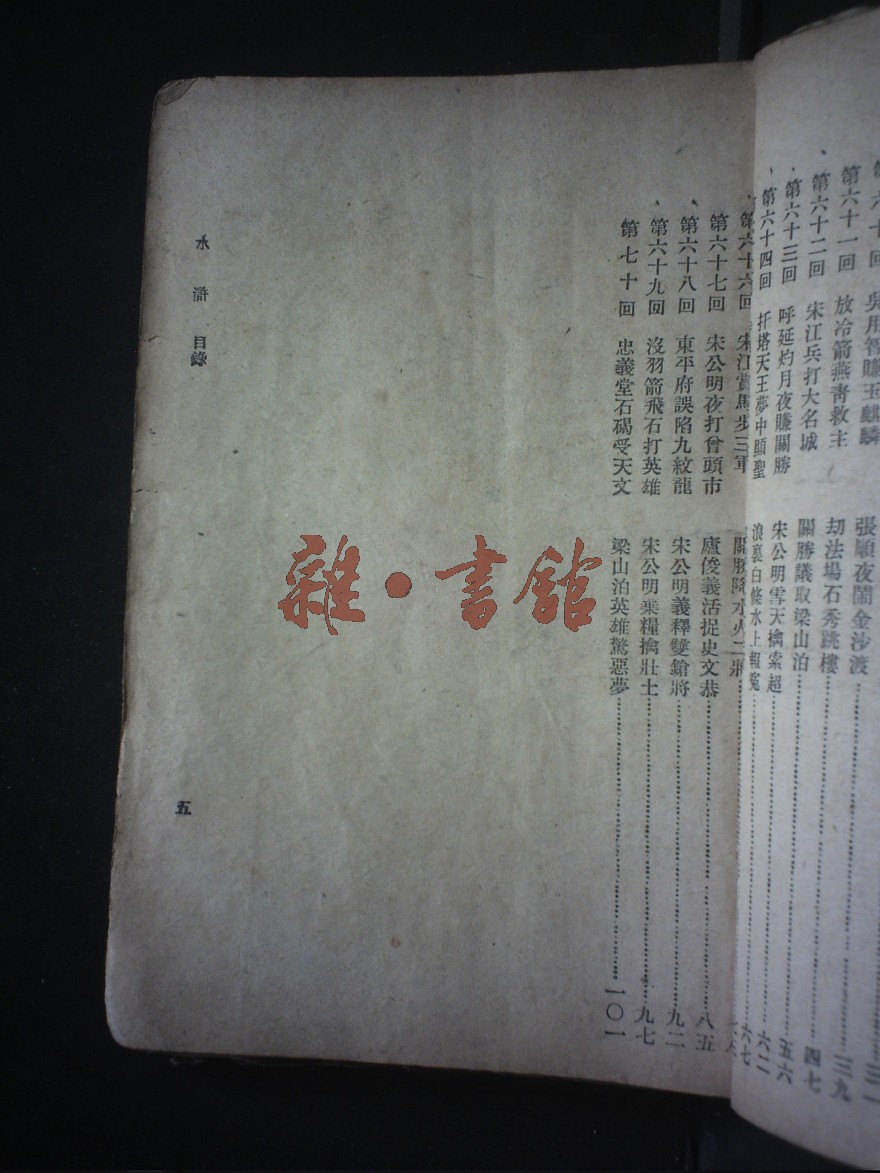 吳用智賺玉麒麟 張順夜鬧金沙渡 三一
第六十一回 放冷箭燕靑救主 刧法場石秀跳樓 三九
第六十二回 宋江兵打大名城 關勝議取梁山泊 四七
第六十三回 呼延灼月夜賺關勝 宋公明雪天擒索超 五六
第六十四回 托塔天王夢中顯聖 浪裏白條水上報寃 六二
六七
第六十六回 宋江賞馬步三軍 關勝降水火二將
第六十七回 宋公明夜打曾頭市 盧俊義活捉史文恭 八五
第六十八回 東平府誤陷九紋龍 宋公明義釋雙鎗將 九二
第六十九回 沒羽箭飛石打英雄 宋公明棄糧擒壯士 九七
第七十回 忠義堂石碣受天文 梁山泊英雄驚惡夢 一〇一
水滸 目錄 五
雜·書館